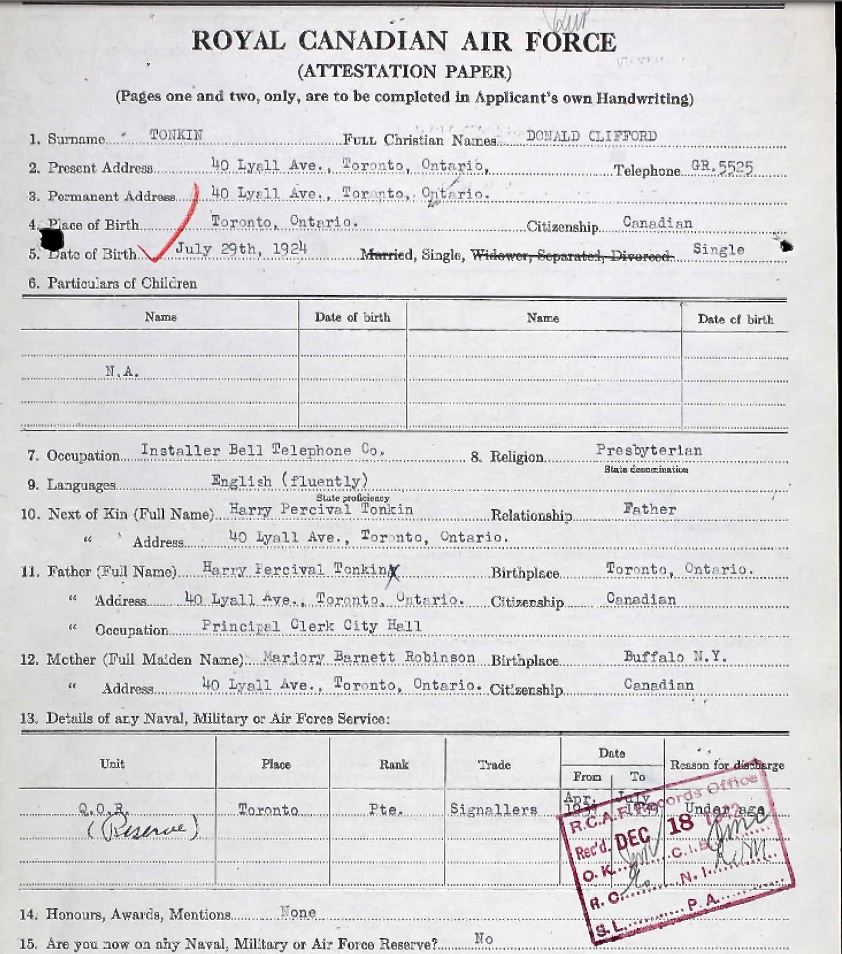 ROYAL CANADIAN AIR FORCE
(ATTESTATION PAPER)
(Pages one and two, only, are to be completed in Applicant's own Handwriting)
1. Surname TONKIN FULL Christian Names DONALD CLIFFORD
2. Present Address 40 Lyall Ave., Toronto, Ontario, Telephone GR.5525
3. Permanent Address 40 Lyall Ave., Toronto, Ontario.
4. Place of Birth Toronto, Ontario. Citizenship Canadian
5. Date of Birth July 29th, 1924 Married, Single, Widower, Separated, Divorced. Single
6. Particulars of Children
Name Date of birth Name Date of birth
N.A.
7. Occupation Installer Bell Telephone Co. 8. Religion Presbyterian
State denomination
9. Languages English (fluently)
State proficiency
10. Next of Kin (Full Name) Harry Percival Tonkin Relationship Father
" Address 40 Lyall Ave., Toronto, Ontario.
11. Father (Full Name) Harry Percival Tonkin Birthplace Toronto, Ontario.
" Address 40 Lyall Ave., Toronto, Ontario. Citizenship Canadian
" Occupation Principal Clerk City Hall
12. Mother (Full Maiden Name) Marjory Barnett Robinson Birthplace Buffalo N.Y.
" Address 40 Lyall Ave., Toronto, Ontario. Citizenship Canadian
13. Details of any Naval, Military or Air Force Service:
Unit Place Rank Trade Date Reason for discharge
From To
Q.O.R. Toronto Pte. Signallers Apr. July Under age
(Reserve)
R.C.A.F. Records Office
Rec'd. DEC 18
O.K. C.I.B.
R.C. N.I.
S.L. P.A.
14. Honours, Awards, Mentions None
15. Are you now on any Naval, Military or Air Force Reserve? No